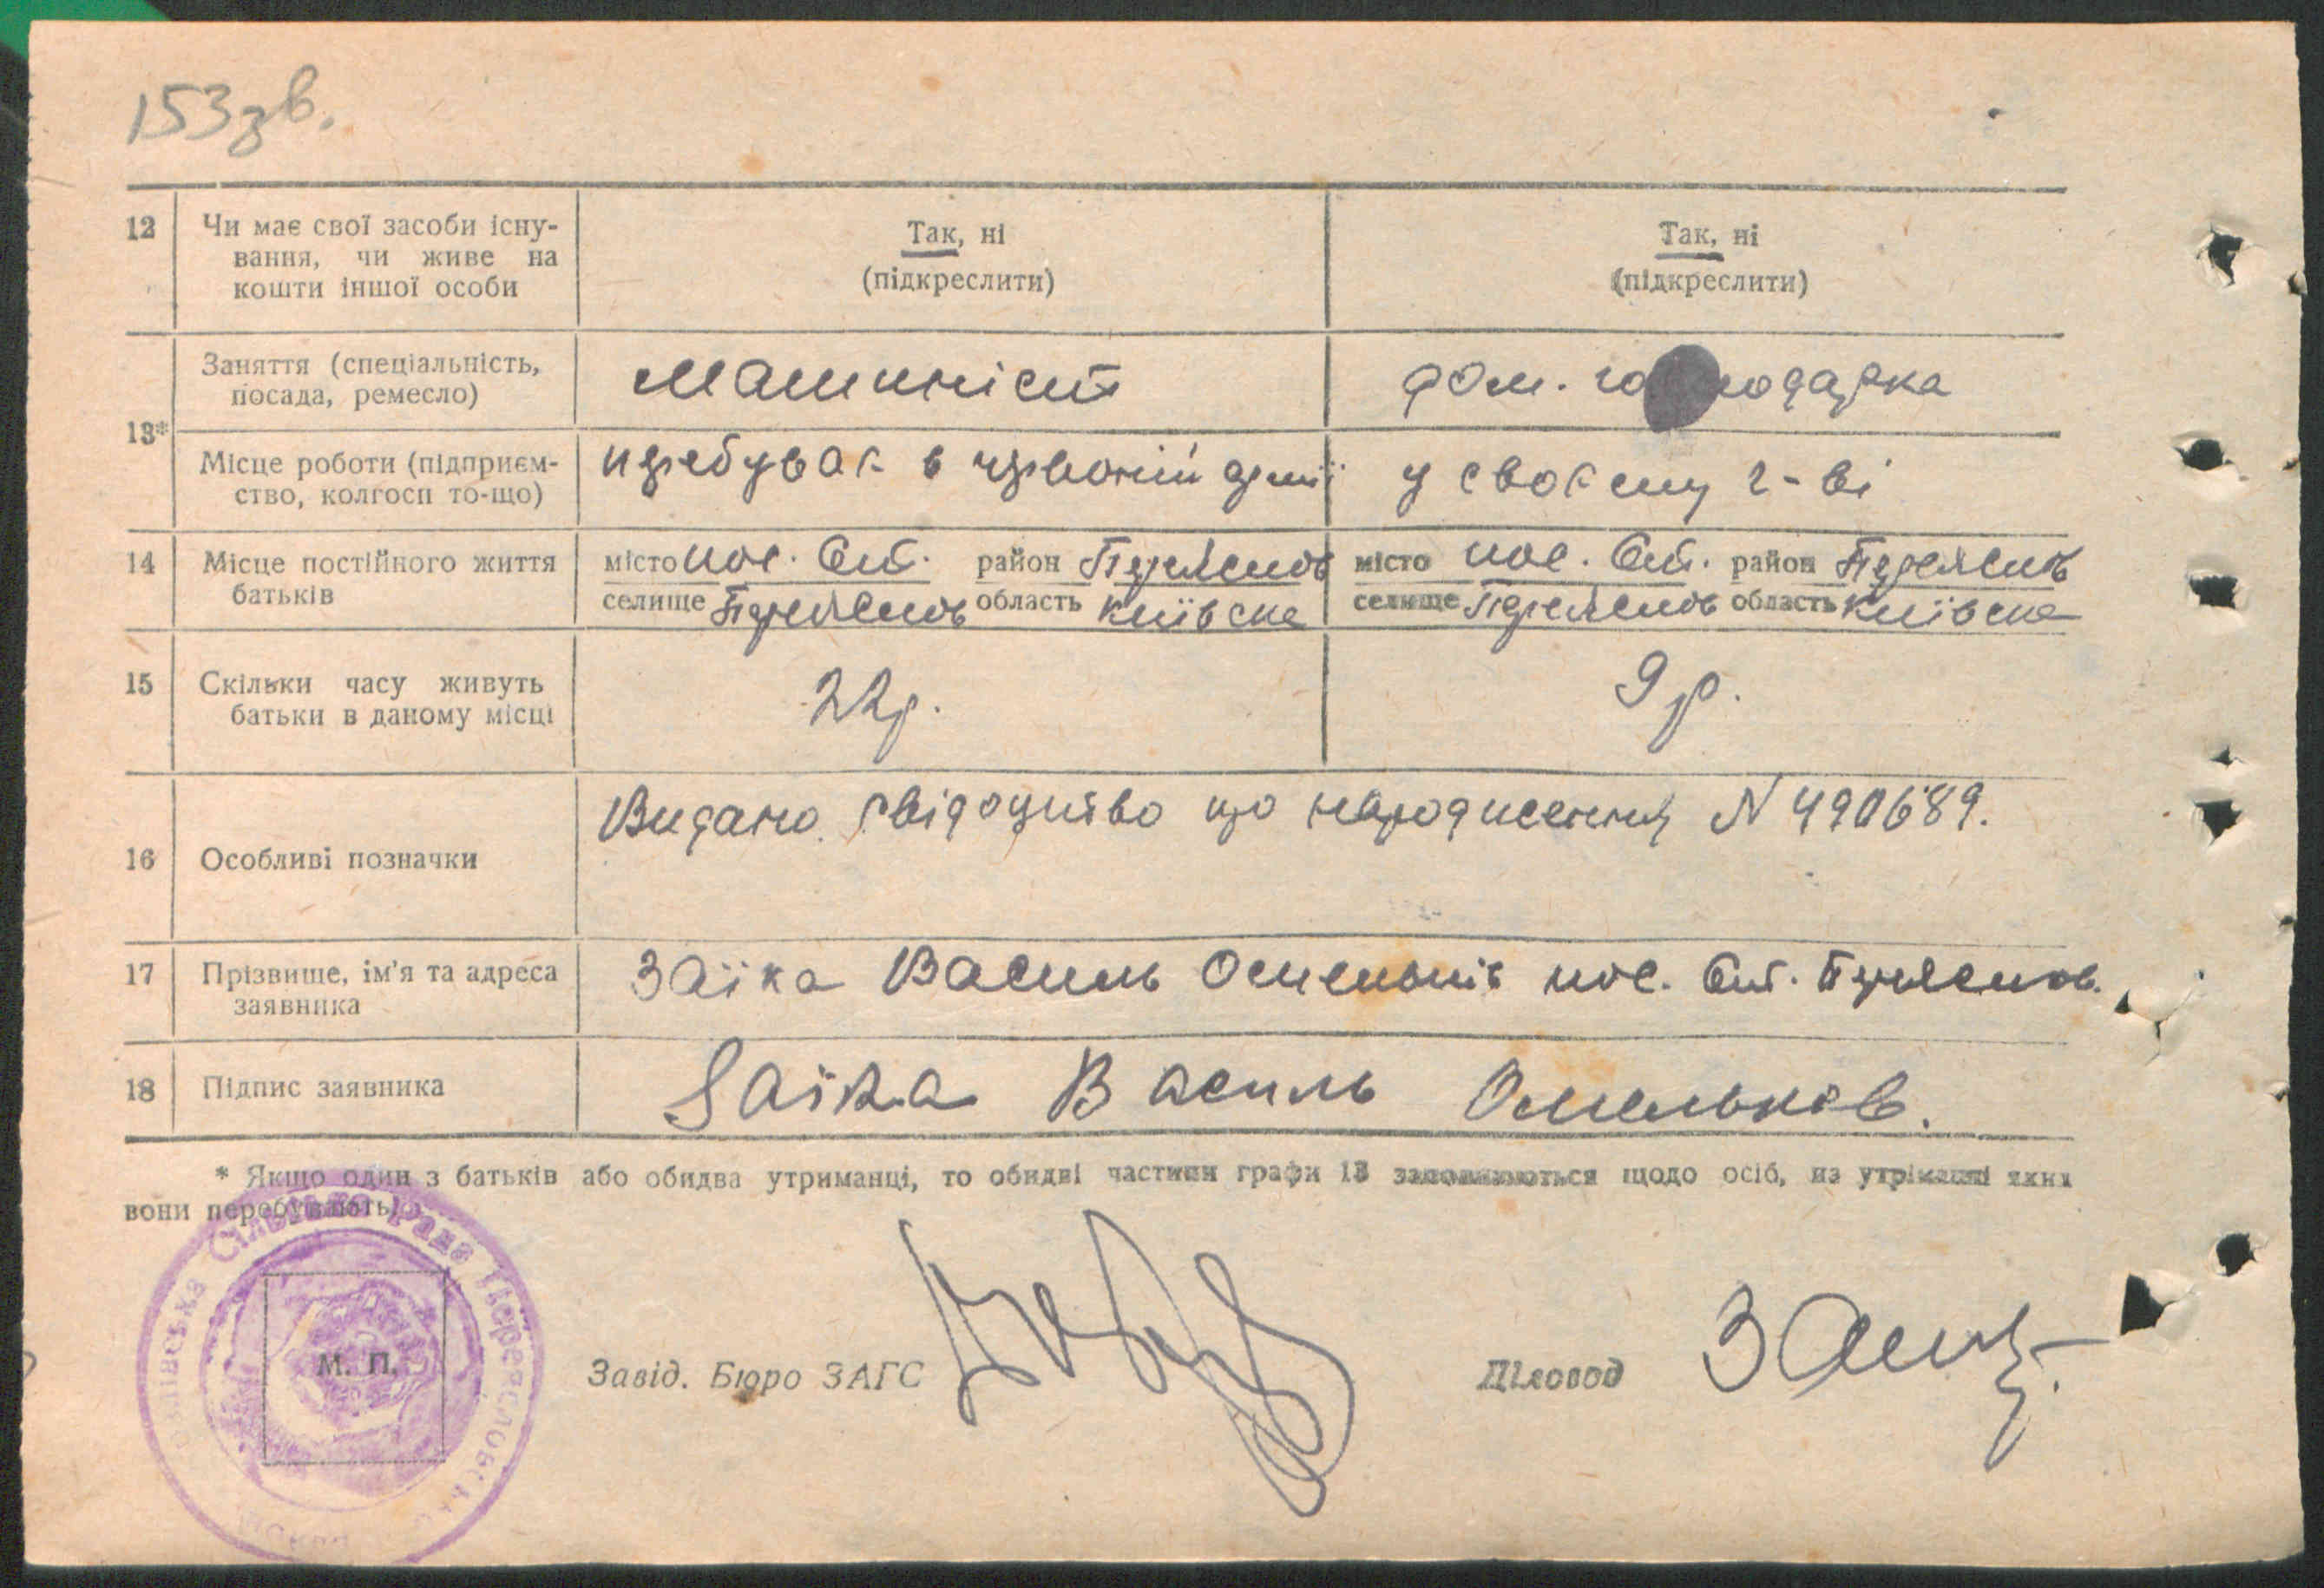 153зв.
12
Чи має свої засоби існу-
вання, чи живе на
кошти іншої особи
Так, ні
(підкреслити)
Так, ні
(підкреслити)
13*
Заняття (спеціальність,
посада, ремесло)
Машиніст
дом. господарка
Місце роботи (підприєм-
ство, колгосп то-що)
перебуває в червоній армії
у своєму г-ві
14
Місце постійного життя
батьків
місто пос. Ст. район Переяслов
селище Переяслов область Київска
місто пос. Ст. район Переяслов
селище Переяслов область Київска
15
Скільки часу живуть
батьки в даному місці
22р.
9р.
16
Особливі позначки
Видано свідоцтво про народження N 490689.
17
Прізвище, ім'я та адреса
заявника
Заїка Василь Омельків пос. Ст. Переяслов.
18
Підпис заявника
Заїка Василь Омельков.
* Якщо один з батьків або обидва утриманці, то обидві частини графи 13 заповнюються щодо осіб, на утриманні яких
вони перебувають.
Сільська рада Переясловськ
М. П.
Завід. Бюро ЗАГС
Діловод